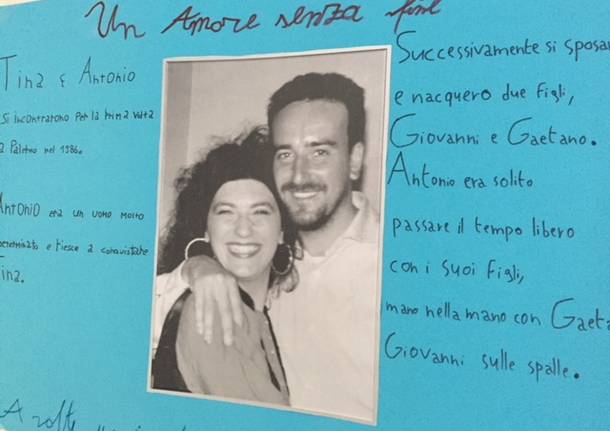 Un Amore senza fine
Tina e Antonio
Si incontrarono per la prima volta
a Palermo nel 1986.
Antonio era un uomo molto
determinato e riesce a conquistare
Tina.
Successivamente si sposar
e nacquero due figli,
Giovanni e Gaetano.
Antonio era solito
passare il tempo libero
con i suoi figli,
mano nella mano con Gaeta
Giovanni sulle spalle.
A volte